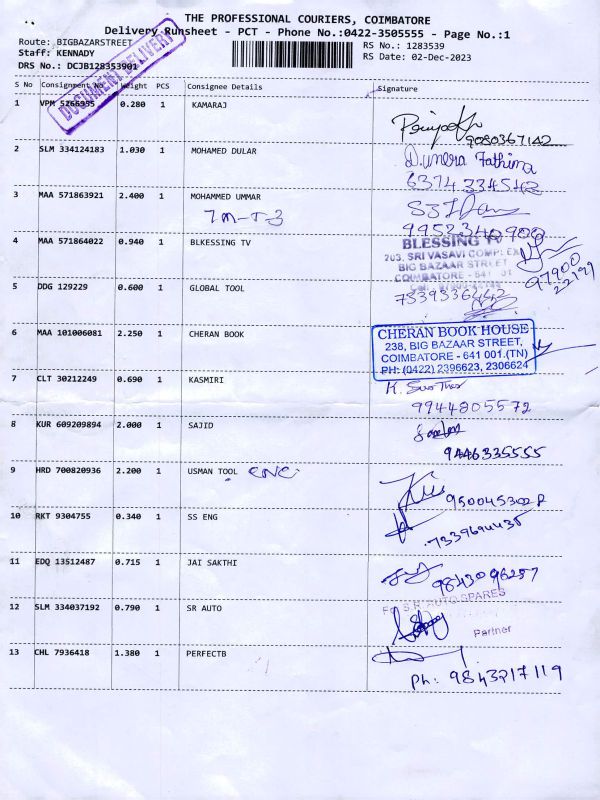 THE PROFESSIONAL COURIERS, COIMBATORE
Delivery Runsheet - PCT - Phone No.:0422-3505555 - Page No.:1
Route: BIGBAZARSTREET RS No.: 1283539
Staff: KENNADY RS Date: 02-Dec-2023
DRS No.: DCJB128353901
DOCUMENT DELIVERY
S No Consignment No Weight PCS Consignee Details Signature
1 VPM 5266955 0.280 1 KAMARAJ
9080367142
2 SLM 334124183 1.030 1 MOHAMED DULAR
Fathima
6374334542
3 MAA 571863921 2.400 1 MOHAMMED UMMAR
9952340900
4 MAA 571864022 0.940 1 BLKESSING TV
BLESSING TV
203, SRI VASAVI COMPLEX
BIG BAZAAR STREET
COIMBATORE - 641
97900
22199
5 DDG 129229 0.600 1 GLOBAL TOOL
7539336442
6 MAA 101006081 2.250 1 CHERAN BOOK
CHERAN BOOK HOUSE
238, BIG BAZAAR STREET,
COIMBATORE - 641 001.(TN)
PH: (0422) 2396623, 2306624
7 CLT 30212249 0.690 1 KASMIRI
9944805572
8 KUR 609209894 2.000 1 SAJID
9446335555
9 HRD 700820936 2.200 1 USMAN TOOL
10 RKT 9304755 0.340 1 SS ENG
7339694435
11 EDQ 13512487 0.715 1 JAI SAKTHI
9843096257
12 SLM 334037192 0.790 1 SR AUTO
For S.R. AUTO SPARES
Partner
13 CHL 7936418 1.380 1 PERFECTB
Ph: 9843217119